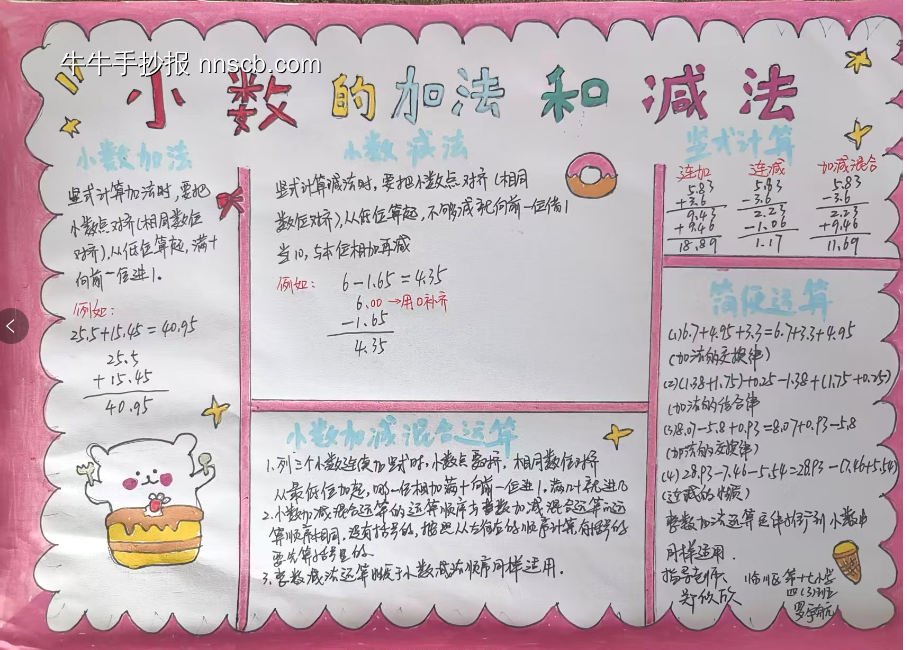 牛牛手抄报 nnscb.com
小数的加法和减法
小数加法
竖式计算加法时,要把
小数点对齐(相同数位
对齐),从低位算起,满十
向前一位进1.
例如:
25.5+15.45=40.95
25.5
+15.45
40.95
小数减法
竖式计算减法时,要把小数点对齐(相同
数位对齐),从低位算起,不够减就向前一位借1
当10,与本位相加再减
例如: 6-1.65=4.35
6.00→用0补齐
-1.65
4.35
小数加减混合运算
1.列三个小数连续加竖式时,小数点要对齐,相同数位对齐
从最低位加起,哪一位相加满十向前一位进1.满几十就进几
2.小数加减混合运算的运算顺序与整数加减混合运算的运
算顺序相同,没有括号的,按照从左往右的顺序计算,有括号的
要先算括号里的.
3.整数减法运算 小数减法 同样适用.
竖式计算
连加 连减 加减混合
5.83 5.83 5.83
+3.6 -3.6 -3.6
9.43 2.23 2.23
+9.46 -1.06 +9.46
18.89 1.17 11.69
简便运算
(1)6.7+4.95+3.3=6.7+3.3+4.95
(加法的交换律)
(2)(1.38+1.75)+0.25-1.38+(1.75+0.25)
(加法的结合律
(3)8.07-5.8+0.93=8.07+0.93-5.8
(加法的交换律)
(4)28.93-7.46-5.54=28.93-(7.46+5.54)
(连减的性质)
整数加法运算定律 小数中
同样适用.
指导老师:
临川区第十七小学
四(3)班